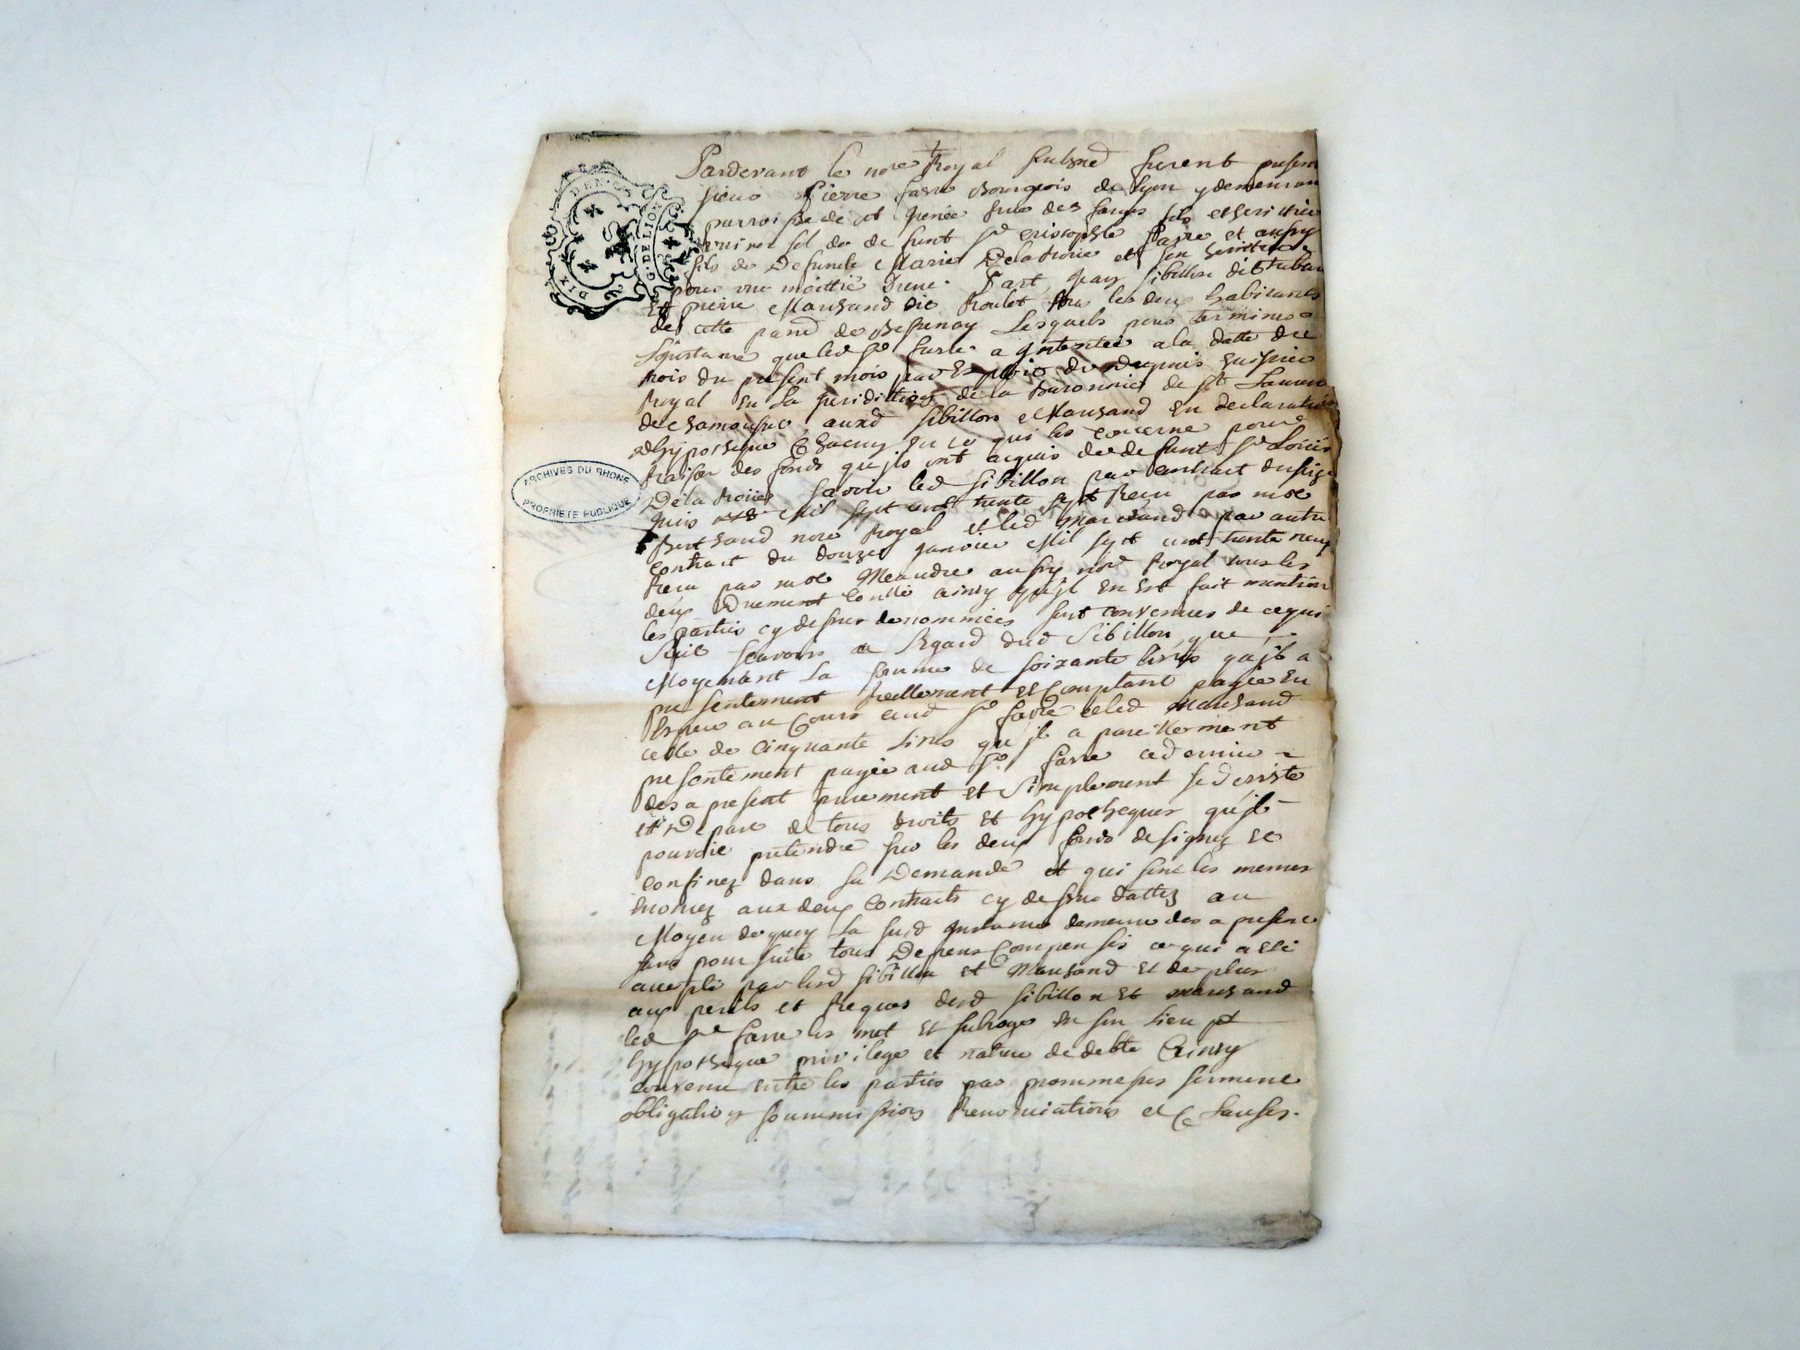 DIX DEN.
G. DE LION
Pardevant le nore Royal subsné furent presen
sieur Pierre favre Bourgeois de Lyon y demeuran
parroisse de st rue des fils et heritier
de defunt Sr cristophle favre et aussy
fils de Defuncte Marie Delaroüe et son heritier
pour une moittié d'une part, Jean Sibillon dit
Et pierre Marchand dit Roulet tous les deux habitants
de cette parr de Bessenay Lesquels pour terminer
L'jnstance que led Sr favre a jntentée a la datte du
trois du present mois par Exploit de
Royal En La juridittion de la Baronnie de St Laurent
de chamousset auxd Sibillon et Marchand En declaration
d'hypotheque Chacun En ce qui les concerne pour
Raison des fonds qu'jls ont acquis de defunt Sr
Delaroüe Savoir led Sibillon par contract du
mil sept cent trente sept Receu par me
Berthaud nore Royal et led Marchand par autre
contract du douze janvier Mil sept cent trente neuf
Receu par me Meaudre aussy nore Royal tous les
deux Duement Conllé ainsy qu'jl En Est fait mention
les parties cy dessus denommées sont convenues de ce qui
Suit scavoir a L'Egard dud Sibillon, que
Moyennant La somme de soixante livres qu'jl a
presentement Reellement Et Comptant payée En
Espece au Cours aud Sr favre et led Marchand
celle de Cinquante Livres qu'jl a pareillement
presentement payée aud Sr favre ce dernier
des a present purement Et Simplement Se Desiste
et Depart de tous droits Et hypotheques qu'jl
pouvoit pretendre sur les deux fonds designez Et
Confinez dans sa Demande et qui sont les memes
Enoncez aux deux Contracts cy dessus dattez au
Moyen de quoy La susd jnstance demeure des a present
sans poursuite tous Depens Compensés ce qui a eté
accepté par lesd Sibillon et Marchand Et de plus
aux perils et Risques desd Sibillon Et Marchand
led Sr favre les met Et subroge En son Lieu
hypotheque privilege et nature de debte Ainsy
convenu entre les parties par prommesses serment
obligation soummissions Renonciations et C Clauses.
ARCHIVES DU RHONE
PROPRIETE PUBLIQUE